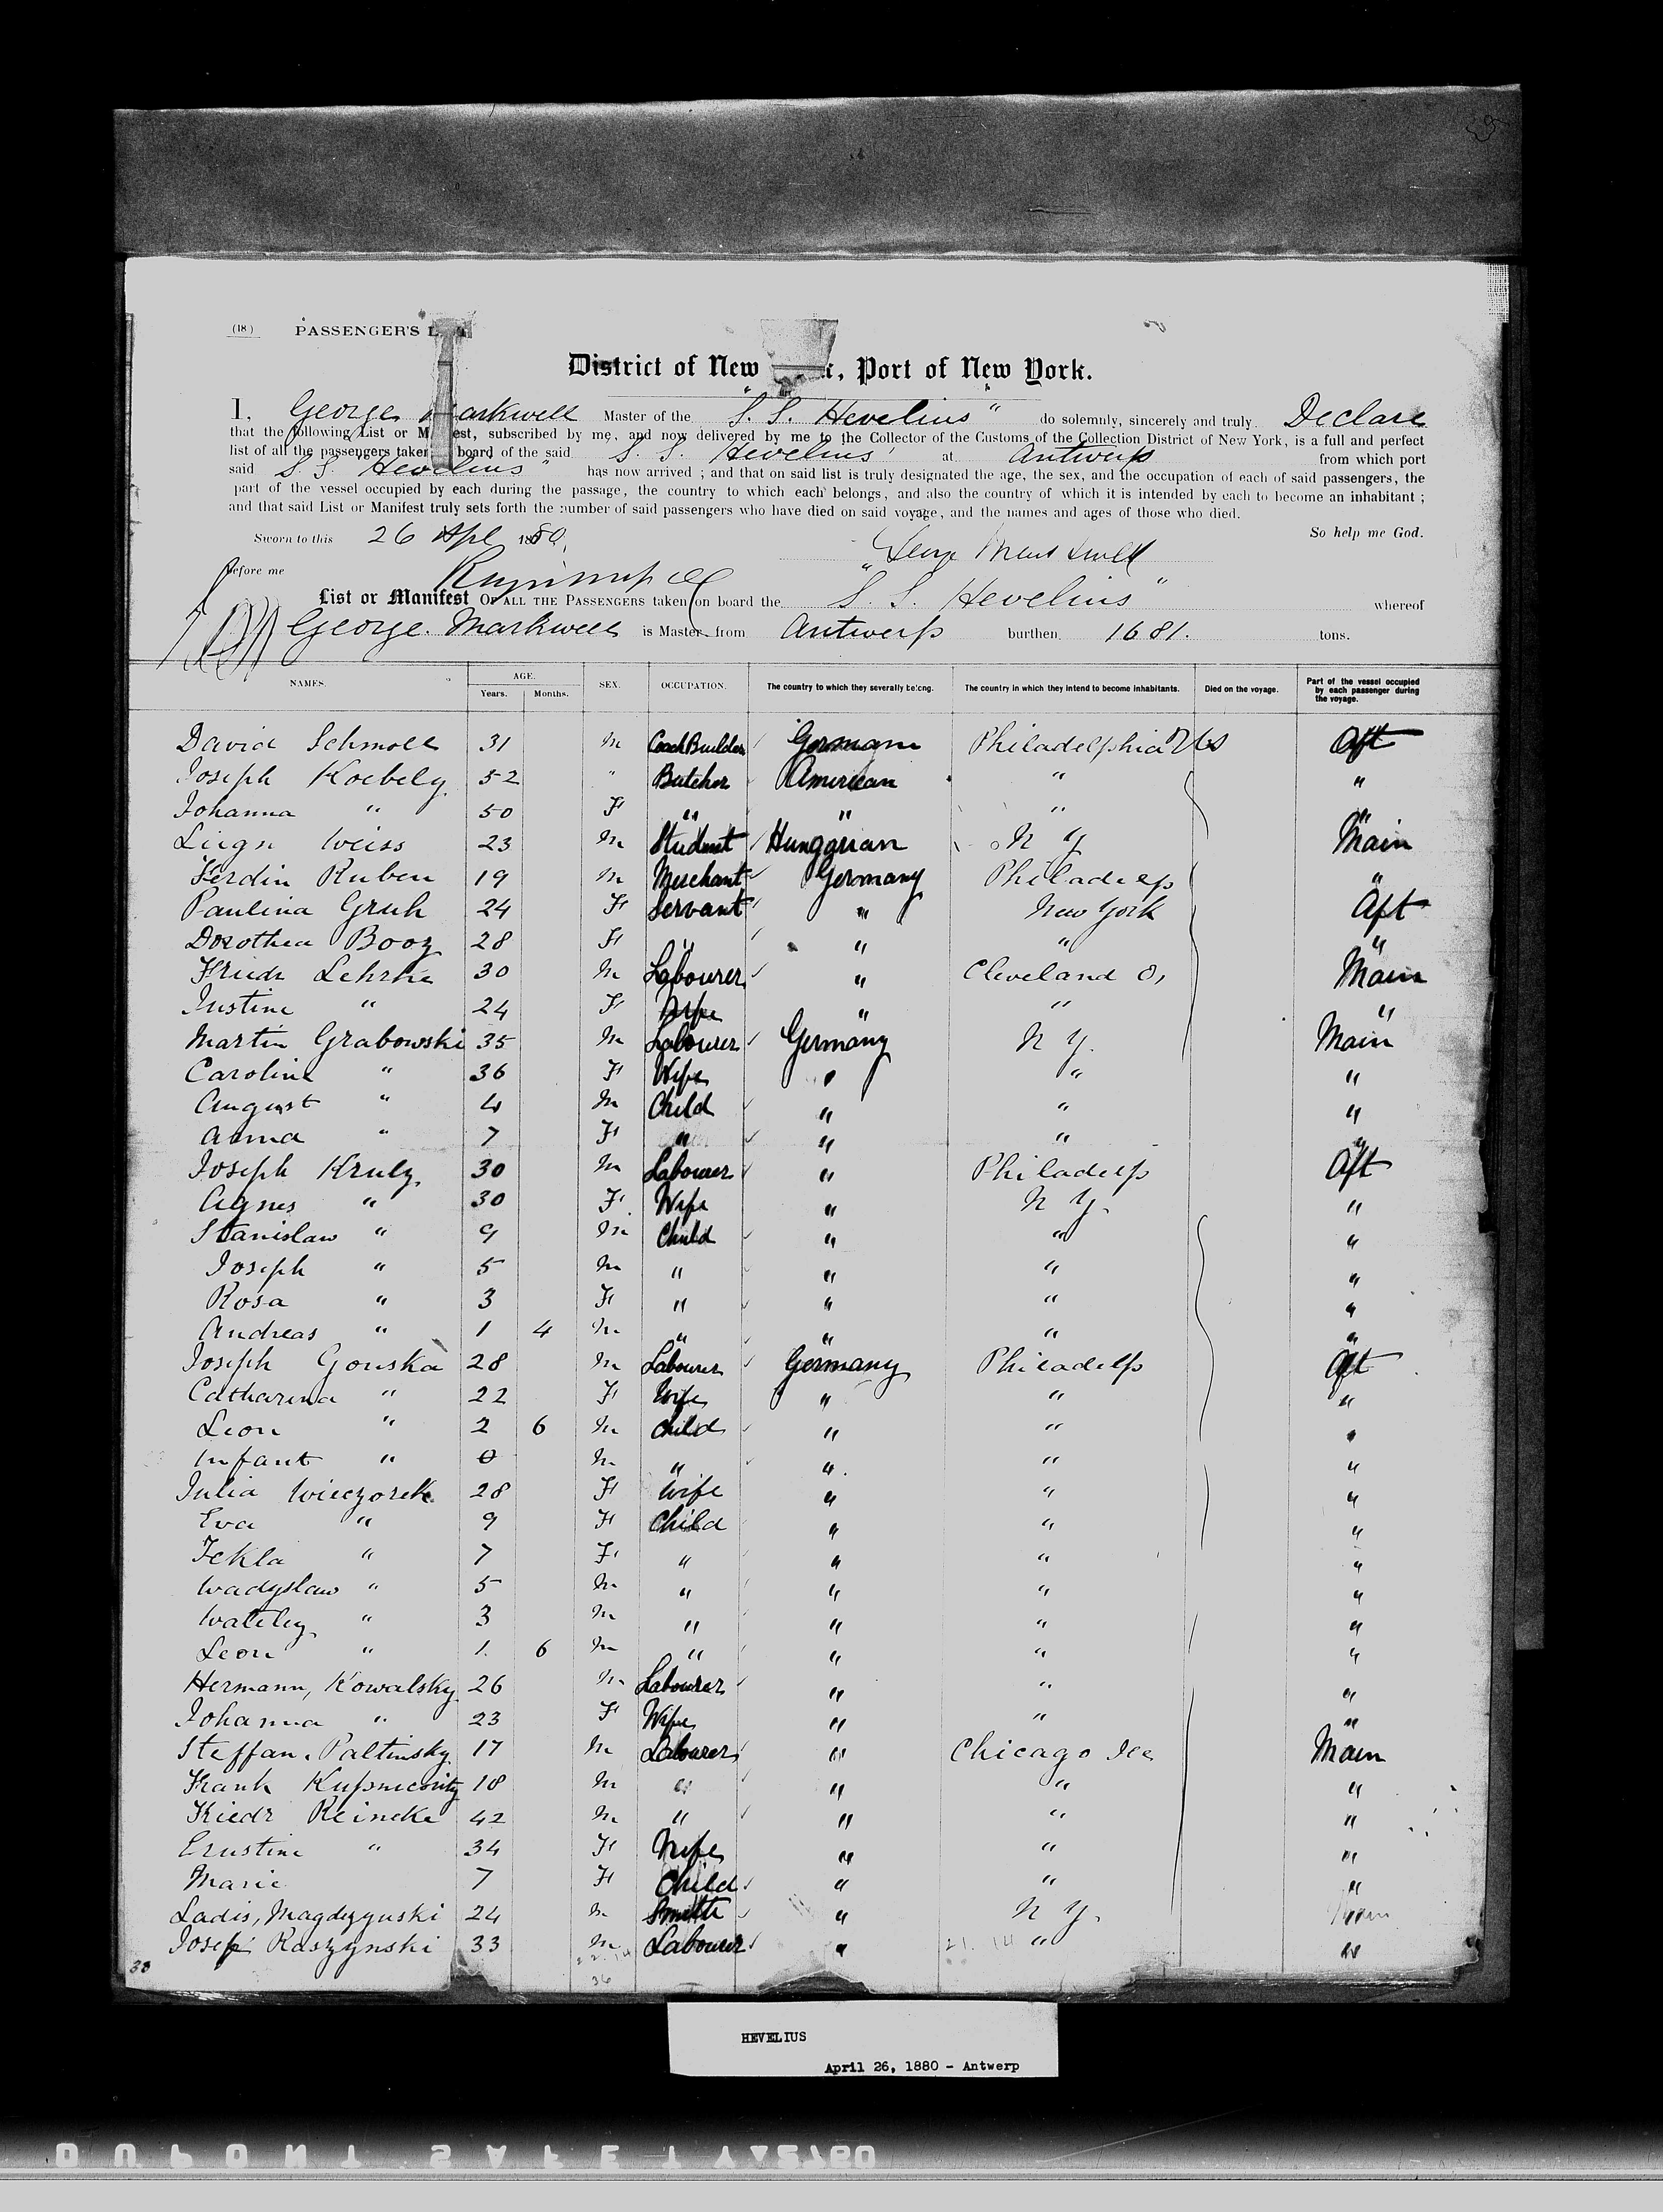 (18) PASSENGER'S L
District of New , Port of New York.
I, George Markwell Master of the "S. S. Hevelius" do solemnly, sincerely and truly Declare
that the following List or Manifest, subscribed by me, and now delivered by me to the Collector of the Customs of the Collection District of New York, is a full and perfect
list of all the passengers taken board of the said S. S. Hevelius at Antwerp from which port
said S. S. "Hevelius" has now arrived ; and that on said list is truly designated the age, the sex, and the occupation of each of said passengers, the
part of the vessel occupied by each during the passage, the country to which each belongs, and also the country of which it is intended by each to become an inhabitant ;
and that said List or Manifest truly sets forth the number of said passengers who have died on said voyage, and the names and ages of those who died.
Sworn to this 26 Apl 1880, So help me God.
George Markwell
before me
List or Manifest OF ALL THE PASSENGERS taken on board the "S. S. Hevelius" whereof
George Markwell is Master from Antwerp burthen 1681. tons.
NAMES. AGE. Years. Months. SEX. OCCUPATION. The country to which they severally belong. The country in which they intend to become inhabitants. Died on the voyage. Part of the vessel occupied by each passenger during the voyage.
David Schmoll 31 M Coach Builder German Philadelphia Aft
Joseph Koebely 52 " Butcher American " "
Johanna " 50 F " " " "
Weiss 23 M Student Hungarian N Y Main
Ferdin Ruben 19 M Merchant Germany Philadelp "
Paulina Gruh 24 F Servant " New York Aft
Dorothea Booz 28 F " " " "
Friedr Lehrke 30 M Labourer " Cleveland O, Main
Justine " 24 F Wife " " "
Martin Grabowski 35 M Labourer Germany N Y. Main
Caroline " 36 F Wife " " "
August " 4 M Child " " "
Anna " 7 F " " " "
Joseph Kruly 30 M Labourer " Philadelp Aft
Agnes " 30 F Wife " N Y. "
Stanislaw " 9 M Child " " "
Joseph " 5 M " " " "
Rosa " 3 F " " " "
Andreas " 1 4 M " " " "
Joseph Gouska 28 M Labourer Germany Philadelp Aft
Catharina " 22 F Wife " " "
Leon " 2 6 M Child " " "
Infant " 0 M " " " "
Julia Wieczorek 28 F Wife " " "
Eva " 9 F Child " " "
Tekla " 7 F " " " "
Wadyslaw " 5 M " " " "
" 3 M " " " "
Leon " 1. 6 M " " " "
Hermann, Kowalsky 26 M Labourer " " "
Johanna " 23 F Wife " " "
Steffan, Paltinsky 17 M Labourer " Chicago Ill Main
Frank 18 M " " " "
Friedr Reineke 42 M " " " "
Ernstine " 34 F Wife " " "
Marie 7 F Child " " "
Ladis, Magdzynski 24 M Smith " N Y. Main
Josef Raszynski 33 M Labourer " " "
38
36
21. 14
HEVELIUS
April 26, 1880 - Antwerp
DUPONT SAFETY